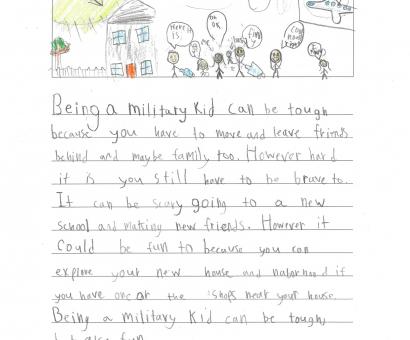 Here it is.
oh OK
Being a military kid can be tough
because you have to move and leave friends
behind and maybe family too. However hard
it is you still have to be brave to.
It can be scary going to a new
school and making new friends. However it
could be fun to because you can
explore your new house and nabor hood if
you have one or the shops near your house.
Being a military kid can be tough,
but also fun